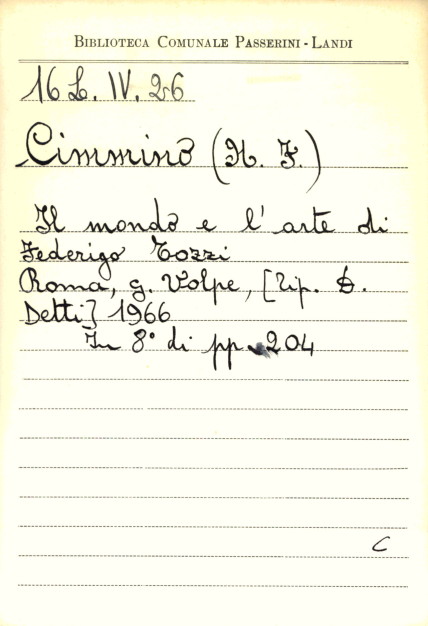 BIBLIOTECA COMUNALE PASSERINI - LANDI
16 L. IV. 26
Cimmino (N. F.)
Il mondo e l'arte di
Federigo Tozzi
Roma, G. Volpe, [Tip. D.
Detti] 1966
In 8° di pp. 204
C